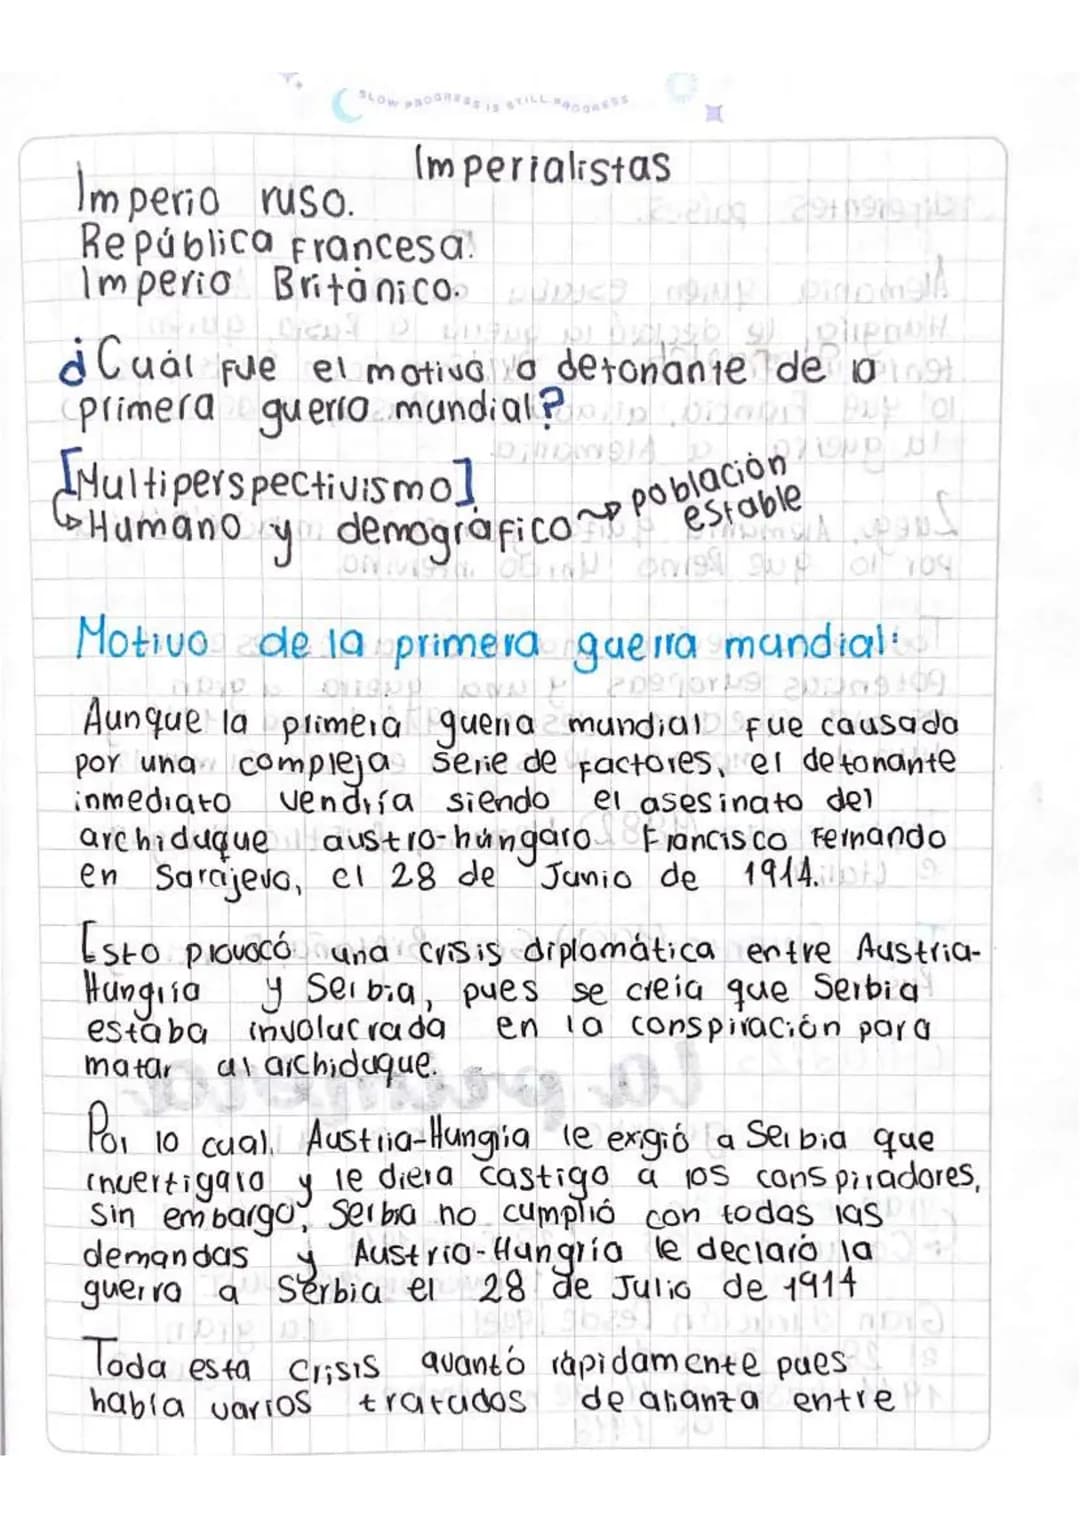 SLOW PROGRESS IS STILL PROGRESS
Imperialistas
Imperio ruso.
República Francesa.
Imperio Británico.
¿Cuál fue el motivo o detonante de la
primera guerra mundial?
[Multiperspectivismo]
↳Humano y demográfico ⤳ población
estable
Motivo de la primera guerra mundial:
Aunque la primera guerra mundial fue causada
por una compleja serie de factores, el detonante
inmediato vendría siendo el asesinato del
archiduque austro-húngaro Francisco Fernando
en Sarajevo, el 28 de Junio de 1914.
Esto provocó una crisis diplomática entre Austria-
Hungría y Serbia, pues se creía que Serbia
estaba involucrada en la conspiración para
matar al archiduque.
Por lo cual, Austria-Hungría le exigió a Serbia que
invertigara y le diera castigo a los conspiradores,
sin embargo, Serbia no cumplió con todas las
demandas y Austria-Hungría le declaró la
guerra a Serbia el 28 de Julio de 1914
Toda esta crisis avantó rápidamente pues
había varios tratados de alianza entre